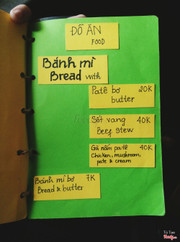 ĐỒ ĂN
FOOD
Bánh mì
Bread with
Patê bơ 20K
butter
Sốt vang 40K
Beef stew
Gà nấm patê 40K
Chicken, mushroom,
pate & cream
Bánh mì bơ 7K
Bread & butter